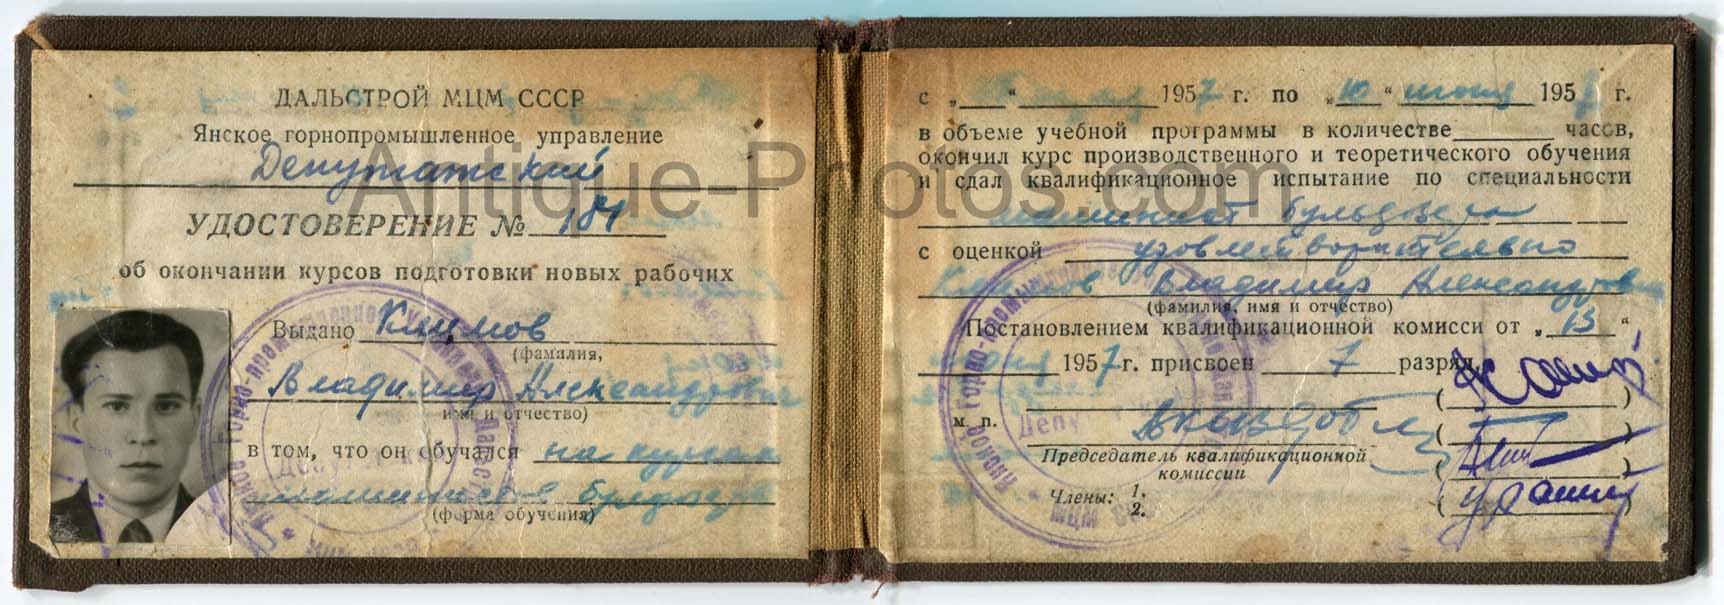 ДАЛЬСТРОЙ МЦМ СССР
Янское горнопромышленное управление
Депутатский
УДОСТОВЕРЕНИЕ № 181
об окончании курсов подготовки новых рабочих
Выдано Климов
(фамилия,
Владимир Александрович
имя и отчество)
в том, что он обучался на курсах
машинистов булдозера
(форма обучения)
с „ “ 1957 г. по „10“ июня 1957 г.
в объеме учебной программы в количестве часов,
окончил курс производственного и теоретического обучения
и сдал квалификационное испытание по специальности
машинист бульдозера
с оценкой удовлетворительно
Климов Владимир Александрович
(фамилия, имя и отчество)
Постановлением квалификационной комисси от „13“
июня 1957 г. присвоен 7 разряд.
м. п.
Председатель квалификационной
комиссии
Члены: 1.
2.
Antique-Photos.com